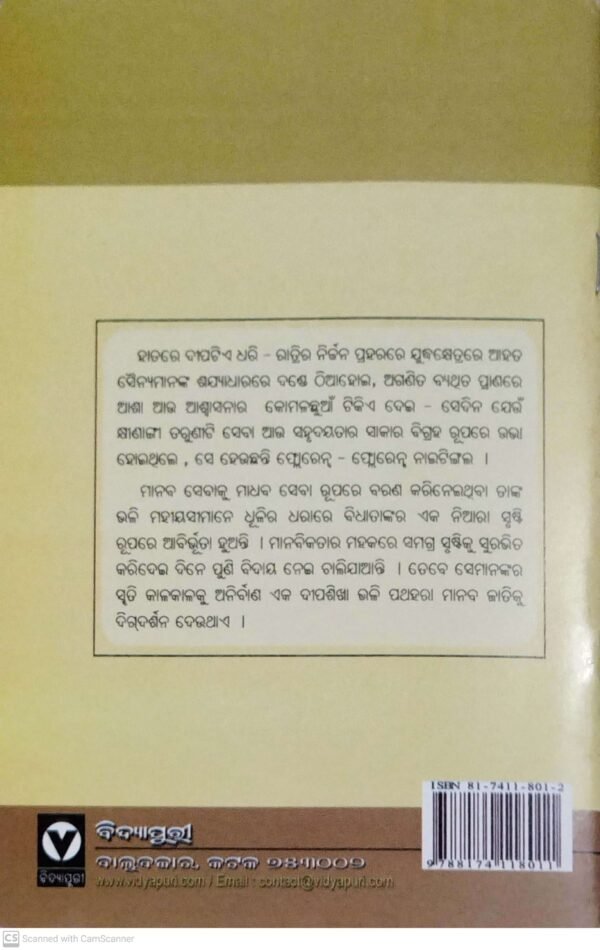 ହାତରେ ଦୀପଟିଏ ଧରି - ରାତ୍ରିର ନିର୍ଜନ ପ୍ରହରରେ ଯୁଦ୍ଧକ୍ଷେତ୍ରରେ ଆହତ
ସୈନ୍ୟମାନଙ୍କ ଶଯ୍ୟାଧାରରେ ଦଣ୍ଡେ ଠିଆହୋଇ, ଅଗଣିତ ବ୍ୟଥିତ ପ୍ରାଣରେ
ଆଶା ଆଉ ଆଶ୍ୱାସନାର କୋମଳଛୁଆଁ ଟିକିଏ ଦେଇ - ସେଦିନ ଯେଉଁ
କ୍ଷୀଣାଙ୍ଗୀ ତରୁଣୀଟି ସେବା ଆଉ ସହୃଦୟତାର ସାକାର ବିଗ୍ରହ ରୂପରେ ଉଭା
ହୋଇଥିଲେ , ସେ ହେଉଛନ୍ତି ଫ୍ଲୋରେନ୍ସ - ଫ୍ଲୋରେନ୍ସ ନାଇଟିଙ୍ଗଲ ।
ମାନବ ସେବାକୁ ମାଧବ ସେବା ରୂପରେ ବରଣ କରିନେଇଥିବା ତାଙ୍କ
ଭଳି ମହୀୟସୀମାନେ ଧୂଳିର ଧରାରେ ବିଧାତାଙ୍କର ଏକ ନିଆରା ସୃଷ୍ଟି
ରୂପରେ ଆବିର୍ଭୂତା ହୁଅନ୍ତି । ମାନବିକତାର ମହକରେ ସମଗ୍ର ସୃଷ୍ଟିକୁ ସୁରଭିତ
କରିଦେଇ ଦିନେ ପୁଣି ବିଦାୟ ନେଇ ଚାଲିଯାଆନ୍ତି । ତେବେ ସେମାନଙ୍କର
ସ୍ମୃତି କାଳକାଳକୁ ଅନିର୍ବାଣ ଏକ ଦୀପଶିଖା ଭଳି ପଥହରା ମାନବ ଜାତିକୁ
ଦିଗ୍‌ଦର୍ଶନ ଦେଉଥାଏ ।
ISBN 81-7411-801-2
9 788174 118011
ବିଦ୍ୟାପୁରୀ
ବାଲୁବଜାର, କଟକ ୭୫୩୦୦୨
ବିଦ୍ୟାପୁରୀ
www.vidyapuri.com / Email : contact@vidyapuri.com
CS Scanned with CamScanner